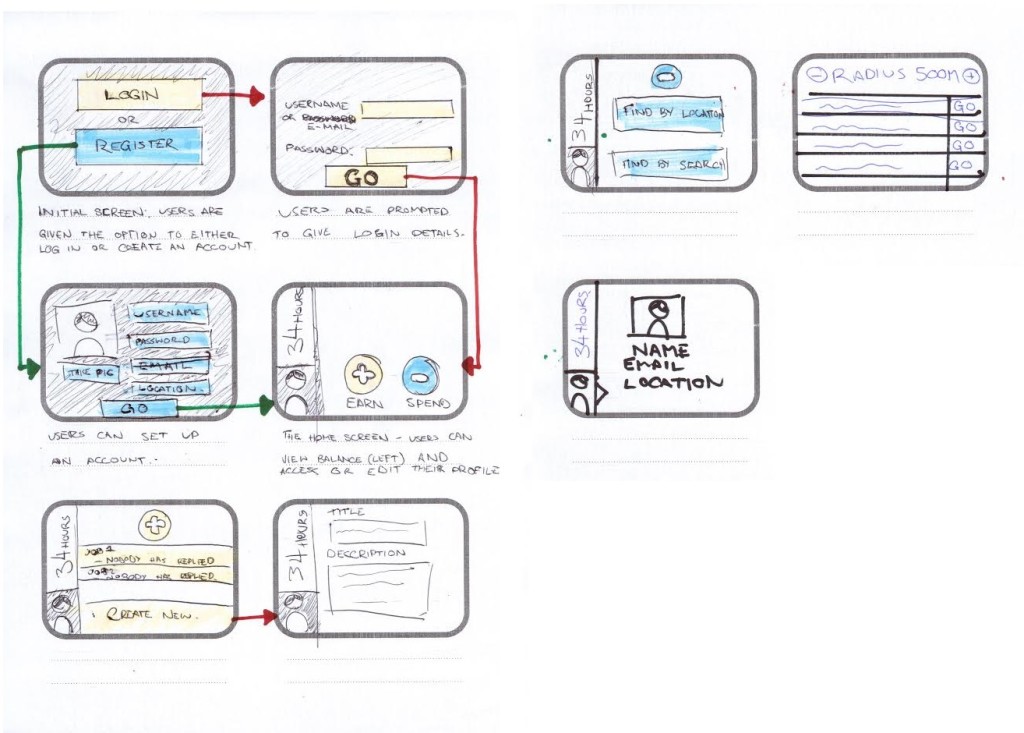 LOGIN
OR
REGISTER
INITIAL SCREEN. USERS ARE
GIVEN THE OPTION TO EITHER
LOG IN OR CREATE AN ACCOUNT
USERNAME
OR PASSWORD
E-MAIL
PASSWORD:
GO
USERS ARE PROMPTED
TO GIVE LOGIN DETAILS.
USERNAME
PASSWORD
EMAIL
LOCATION.
TAKE PIC
GO
USERS CAN SET UP
AN ACCOUNT.-
34 HOURS
EARN
SPEND
THE HOME SCREEN - USERS CAN
VIEW BALANCE (LEFT) AND
ACCESS OR EDIT THEIR PROFILE
34 HOURS
JOB 1
- NOBODY HAS REPLIED
JOB 2
- NOBODY HAS REPLIED.
CREATE NEW.
34 HOURS
TITLE
DESCRIPTION
34 HOURS
FIND BY LOCATION
FIND BY SEARCH
RADIUS 500M
GO
GO
GO
GO
34 HOURS
NAME
EMAIL
LOCATION